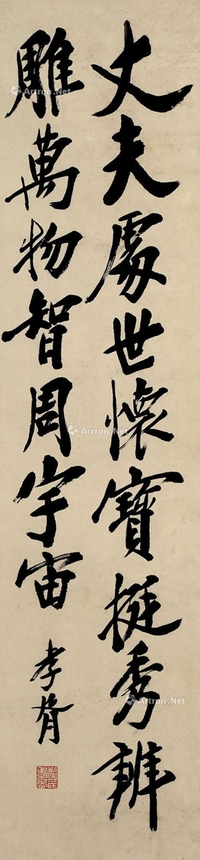 丈夫處世懷寶挺秀辨
雕萬物智周宇宙
孝胥
Artron.Net